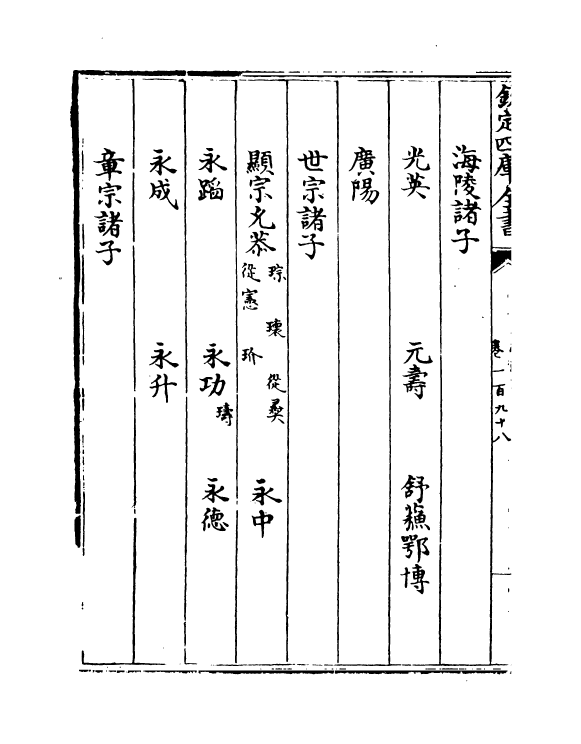 欽定四庫全書
卷一百九十八
海陵諸子
光英 元壽 舒蘓鄂博
廣陽
世宗諸子
顯宗允恭 琮 瓌 從彛 從憲 玠 永中
永蹈 永功 璹 永德
永成 永升
章宗諸子